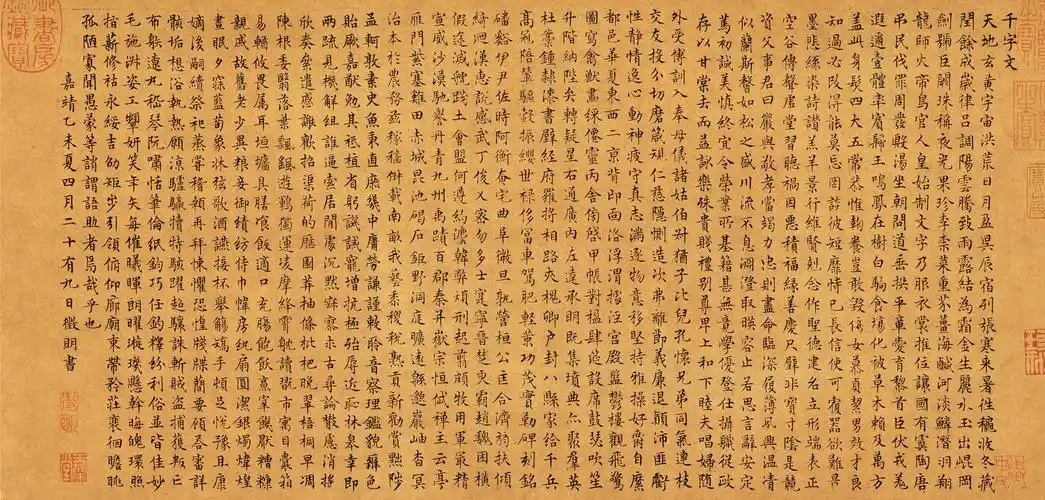 千字文
天地玄黃宇宙洪荒日月盈昃辰宿列張寒來暑往秋收冬藏
閏餘成歲律呂調陽雲騰致雨露結為霜金生麗水玉出崐岡
劍號巨闕珠稱夜光果珍李柰菜重芥薑海鹹河淡鱗潛羽翔
龍師火帝鳥官人皇始制文字乃服衣裳推位讓國有虞陶唐
弔民伐罪周發殷湯坐朝問道垂拱平章愛育黎首臣伏戎羌
遐邇壹體率賓歸王鳴鳳在樹白駒食場化被草木賴及萬方
蓋此身髮四大五常恭惟鞠養豈敢毀傷女慕貞絜男效才良
知過必改得能莫忘罔談彼短靡恃己長信使可覆器欲難量
墨悲絲染詩讚羔羊景行維賢剋念作聖德建名立形端表正
空谷傳聲虛堂習聽禍因惡積福緣善慶尺璧非寶寸陰是競
資父事君曰嚴與敬孝當竭力忠則盡命臨深履薄夙興溫凊
似蘭斯馨如松之盛川流不息淵澄取映容止若思言辭安定
篤初誠美慎終宜令榮業所基籍甚無竟學優登仕攝職從政
存以甘棠去而益詠樂殊貴賤禮別尊卑上和下睦夫唱婦隨
外受傅訓入奉母儀諸姑伯叔猶子比兒孔懷兄弟同氣連枝
交友投分切磨箴規仁慈隱惻造次弗離節義廉退顛沛匪虧
性靜情逸心動神疲守真志滿逐物意移堅持雅操好爵自縻
都邑華夏東西二京背邙面洛浮渭據涇宮殿盤鬱樓觀飛驚
圖寫禽獸畫彩僊靈丙舍傍啓甲帳對楹肆筵設席鼓瑟吹笙
升階納陛弁轉疑星右通廣內左達承明既集墳典亦聚羣英
杜稾鍾隸漆書壁經府羅將相路夾槐卿戶封八縣家給千兵
高冠陪輦驅轂振纓世祿侈富車駕肥輕策功茂實勒碑刻銘
磻谿伊尹佐時阿衡奄宅曲阜微旦孰營桓公匡合濟弱扶傾
綺迴漢惠說感武丁俊乂密勿多士寔寧晉楚更霸趙魏困橫
假途滅虢踐土會盟何遵約法韓弊煩刑起翦頗牧用軍最精
宣威沙漠馳譽丹青九州禹跡百郡秦并嶽宗恒岱禪主云亭
雁門紫塞雞田赤城昆池碣石鉅野洞庭曠遠緜邈巖岫杳冥
治本於農務茲稼穡俶載南畝我藝黍稷稅熟貢新勸賞黜陟
孟軻敦素史魚秉直庶幾中庸勞謙謹敕聆音察理鑑貌辯色
貽厥嘉猷勉其祗植省躬譏誡寵增抗極殆辱近恥林皋幸即
兩疏見機解組誰逼索居閒處沉默寂寥求古尋論散慮逍遙
欣奏累遣慼謝歡招渠荷的歷園莽抽條枇杷晚翠梧桐早凋
陳根委翳落葉飄颻遊鵾獨運凌摩絳霄耽讀翫市寓目囊箱
易輶攸畏屬耳垣牆具膳飡飯適口充腸飽飫烹宰飢厭糟糠
親戚故舊老少異糧妾御績紡侍巾帷房紈扇圓潔銀燭煒煌
晝眠夕寐藍筍象牀絃歌酒讌接杯舉觴矯手頓足悅豫且康
嫡後嗣續祭祀蒸嘗稽顙再拜悚懼恐惶牋牒簡要顧答審詳
骸垢想浴執熱願涼驢騾犢特駭躍超驤誅斬賊盜捕獲叛亡
布射遼丸嵇琴阮嘯恬筆倫紙鈞巧任釣釋紛利俗並皆佳妙
毛施淑姿工顰妍笑年矢每催曦暉朗曜璇璣懸斡晦魄環照
指薪修祜永綏吉劭矩步引領俯仰廊廟束帶矜莊徘徊瞻眺
孤陋寡聞愚蒙等誚謂語助者焉哉乎也
嘉靖乙未夏四月二十有九日徵明書